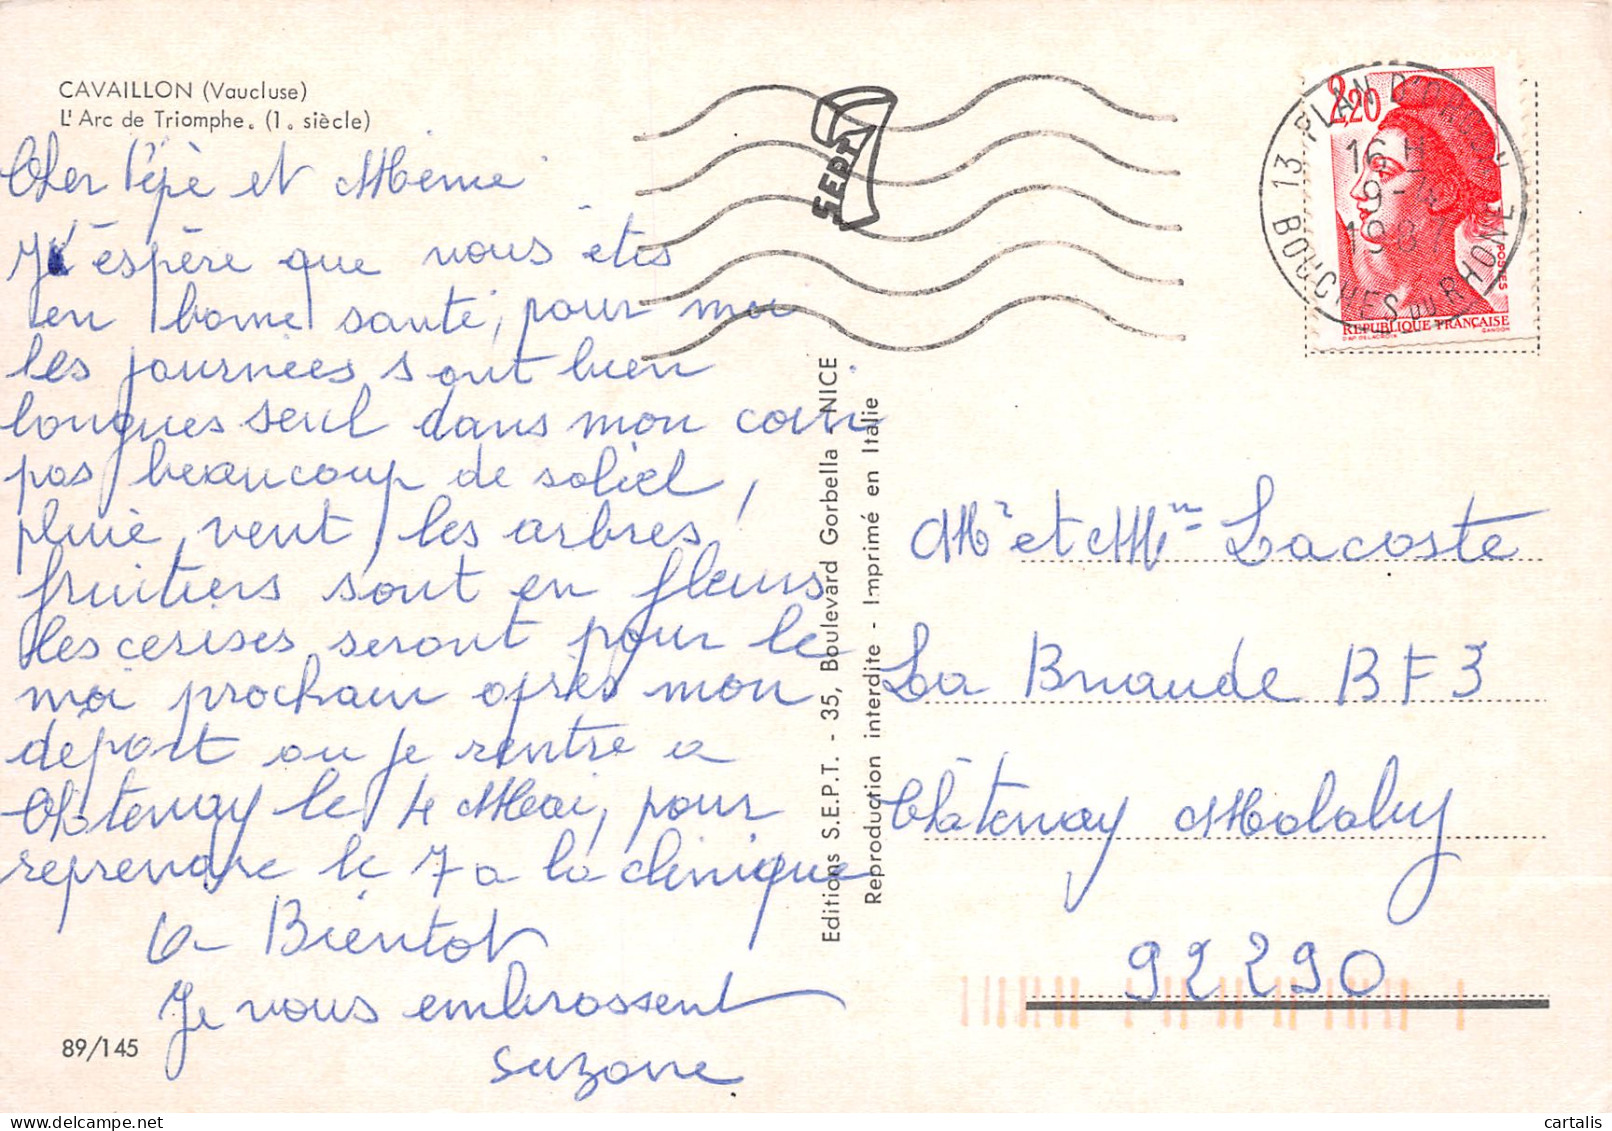 CAVAILLON (Vaucluse)
L' Arc de Triomphe. (1. siècle)
Cher Pépè et Mémé
J'éspère que vous étes
en bonne santé, pour moi
les journées sont bien
longues seul dans mon coin
pas beaucoup de soliel,
pluie, vent, les arbres
fruitiers sont en fleurs
les cerises seront pour le
moi prochain apres mon
depart ou je rentre a
Châtenay le 4 Mai, pour
reprendre le 7 a la clinique
A Bientot
Je vous embrassent
Suzane
89/145
SEPT
Editions S.E.P.T. - 35, Boulevard Gorbella - NICE
Reproduction interdite - Imprimé en Italie
2,20
POSTES
REPUBLIQUE FRANÇAISE
D'AP. DELACROIX GANDON
13 PLAN D'ORGON
16 H
9 - 4
1987
BOUCHES DU RHONE
Mr et Mme Lacoste
La Briaude BF3
Châtenay Malabry
92290
cartalis
delcampe.net